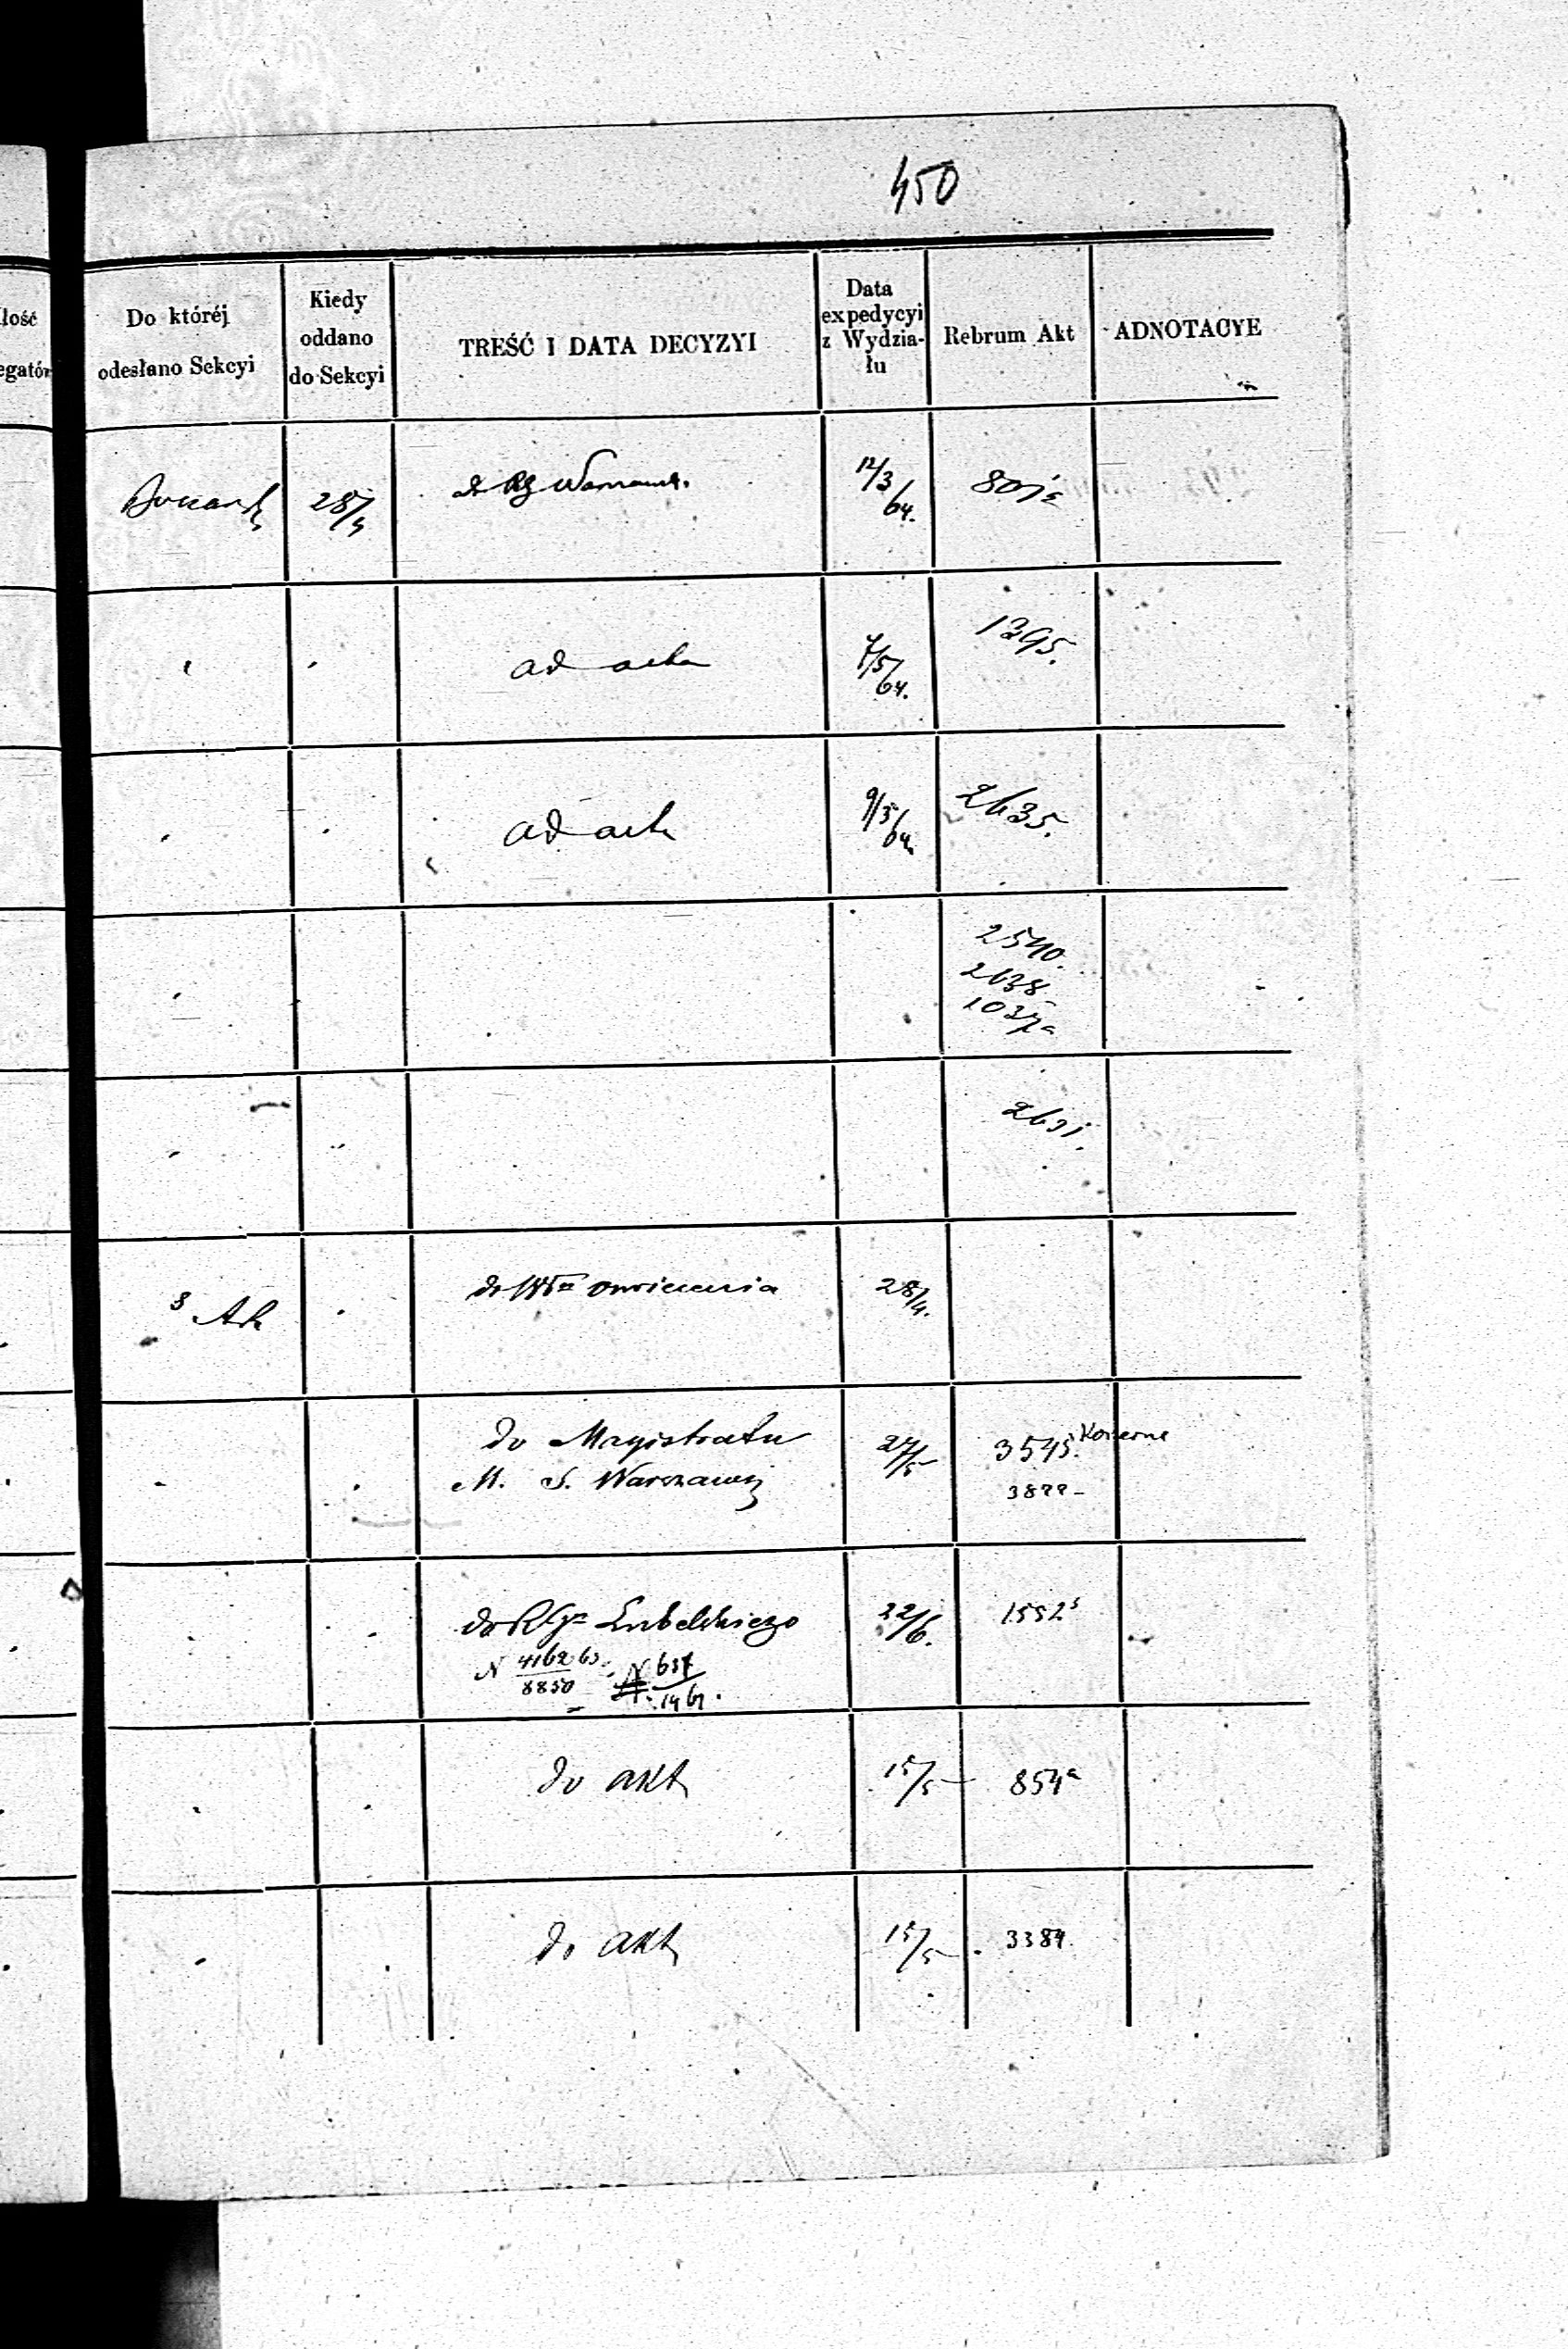 450
Do któréj
odesłano Sekcyi
Kiedy
oddano
do Sekcyi
TREŚĆ I DATA DECYZYI
Data
expedycyi
z Wydzia-
łu
Rebrum Akt
ADNOTACYE
28/4
12/3
64.
ad acta
7/5
64.
1395.
ad acta
9/5
64.
2635.
2540.
2638
1037a
2631.
28/4.
do Magistratu
M. S. Warszawy
27/5
3545. Koszerne
3877 -
do RGu Lubelskiego
N 4162 63.
8850
N 637
1461.
22/6.
1552s
do akt
15/5
854a
do akt
15/5
3384.